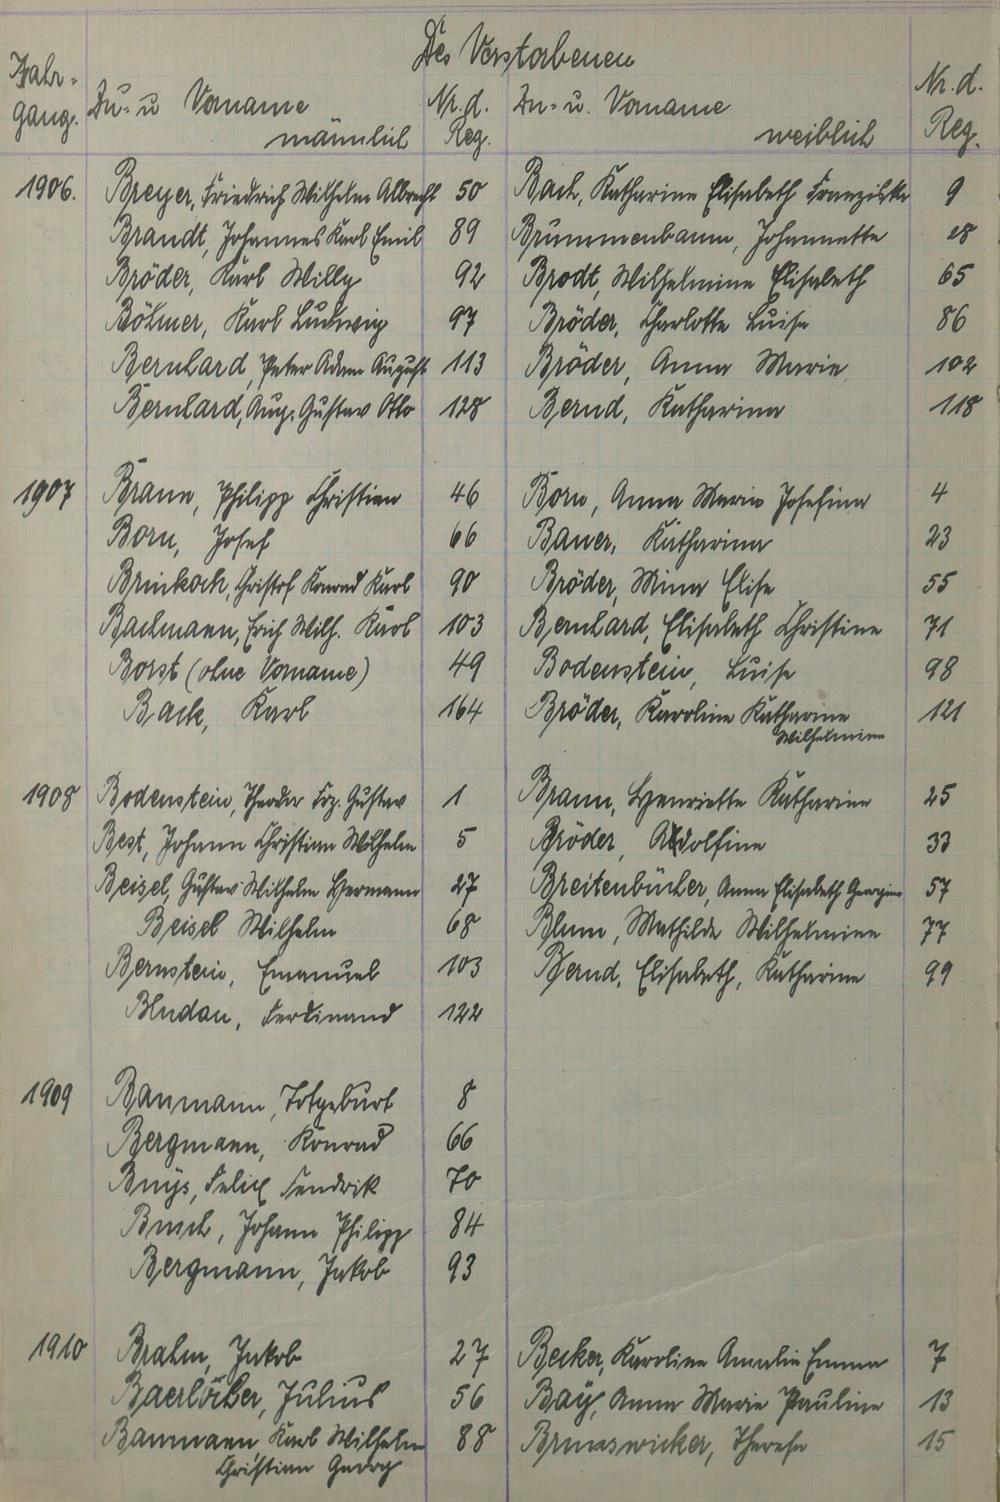 Des Verstorbenen
Jahr- Zu- u Vorname Nr. d. Zu- u. Vorname Nr. d.
gang. männlich Reg. weiblich Reg.
1906. Breyer, Friedrich Wilhelm Albrecht 50 Bach, Katharine Elisabeth Franziska 9
Brandt, Johannes Karl Emil 89 Brummenbaum, Johannette 28
Bröder, Karl Willy 92 Brodt, Wilhelmine Elisabeth 65
Böhmer, Karl Ludwig 97 Bröder, Charlotte Luise 86
Bernhard, Peter Adam August 113 Bröder, Anna Marie 102
Bernhard, Aug. Gustav Otto 128 Bernd, Katharina 118
1907 Braun, Philipp Christian 46 Born, Anna Maria Josefina 4
Born, Josef 66 Bauer, Katharina 23
Brinkoch, Christof Konrad Karl 90 Bröder, Mina Elise 55
Bachmann, Erich Wilh. Karl 103 Bernhard, Elisabeth Christine 71
Borst (ohne Vorname) 49 Bodenstein, Luise 98
Back, Karl 164 Bröder, Karoline Katharine 121
Wilhelmine
1908 Bodenstein, Theodor Frz. Gustav 1 Braun, Henriette Katharine 25
Best, Johann Christian Wilhelm 5 Bröder, Adolfine 33
Beisel, Gustav Wilhelm Hermann 27 Breitenbücher, Anna Elisabeth Georgine 57
Beisel Wilhelm 68 Blum, Mathilde Wilhelmine 77
Bernstein, Emanuel 103 Bernd, Elisabeth, Katharine 99
Bludau, Ferdinand 122
1909 Baumann, Totgeburt 8
Bergmann, Konrad 66
Buijs, Felix Hendrik 70
Busch, Johann Philipp 84
Bergmann, Jakob 93
1910 Brahm, Jakob 27 Becker, Karoline Amalie Emma 7
Baerlöcher, Julius 56 Baÿ, Anna Marie Pauline 13
Baumann Karl Wilhelm 88 Brunswicker, Therese 15
Christian Georg